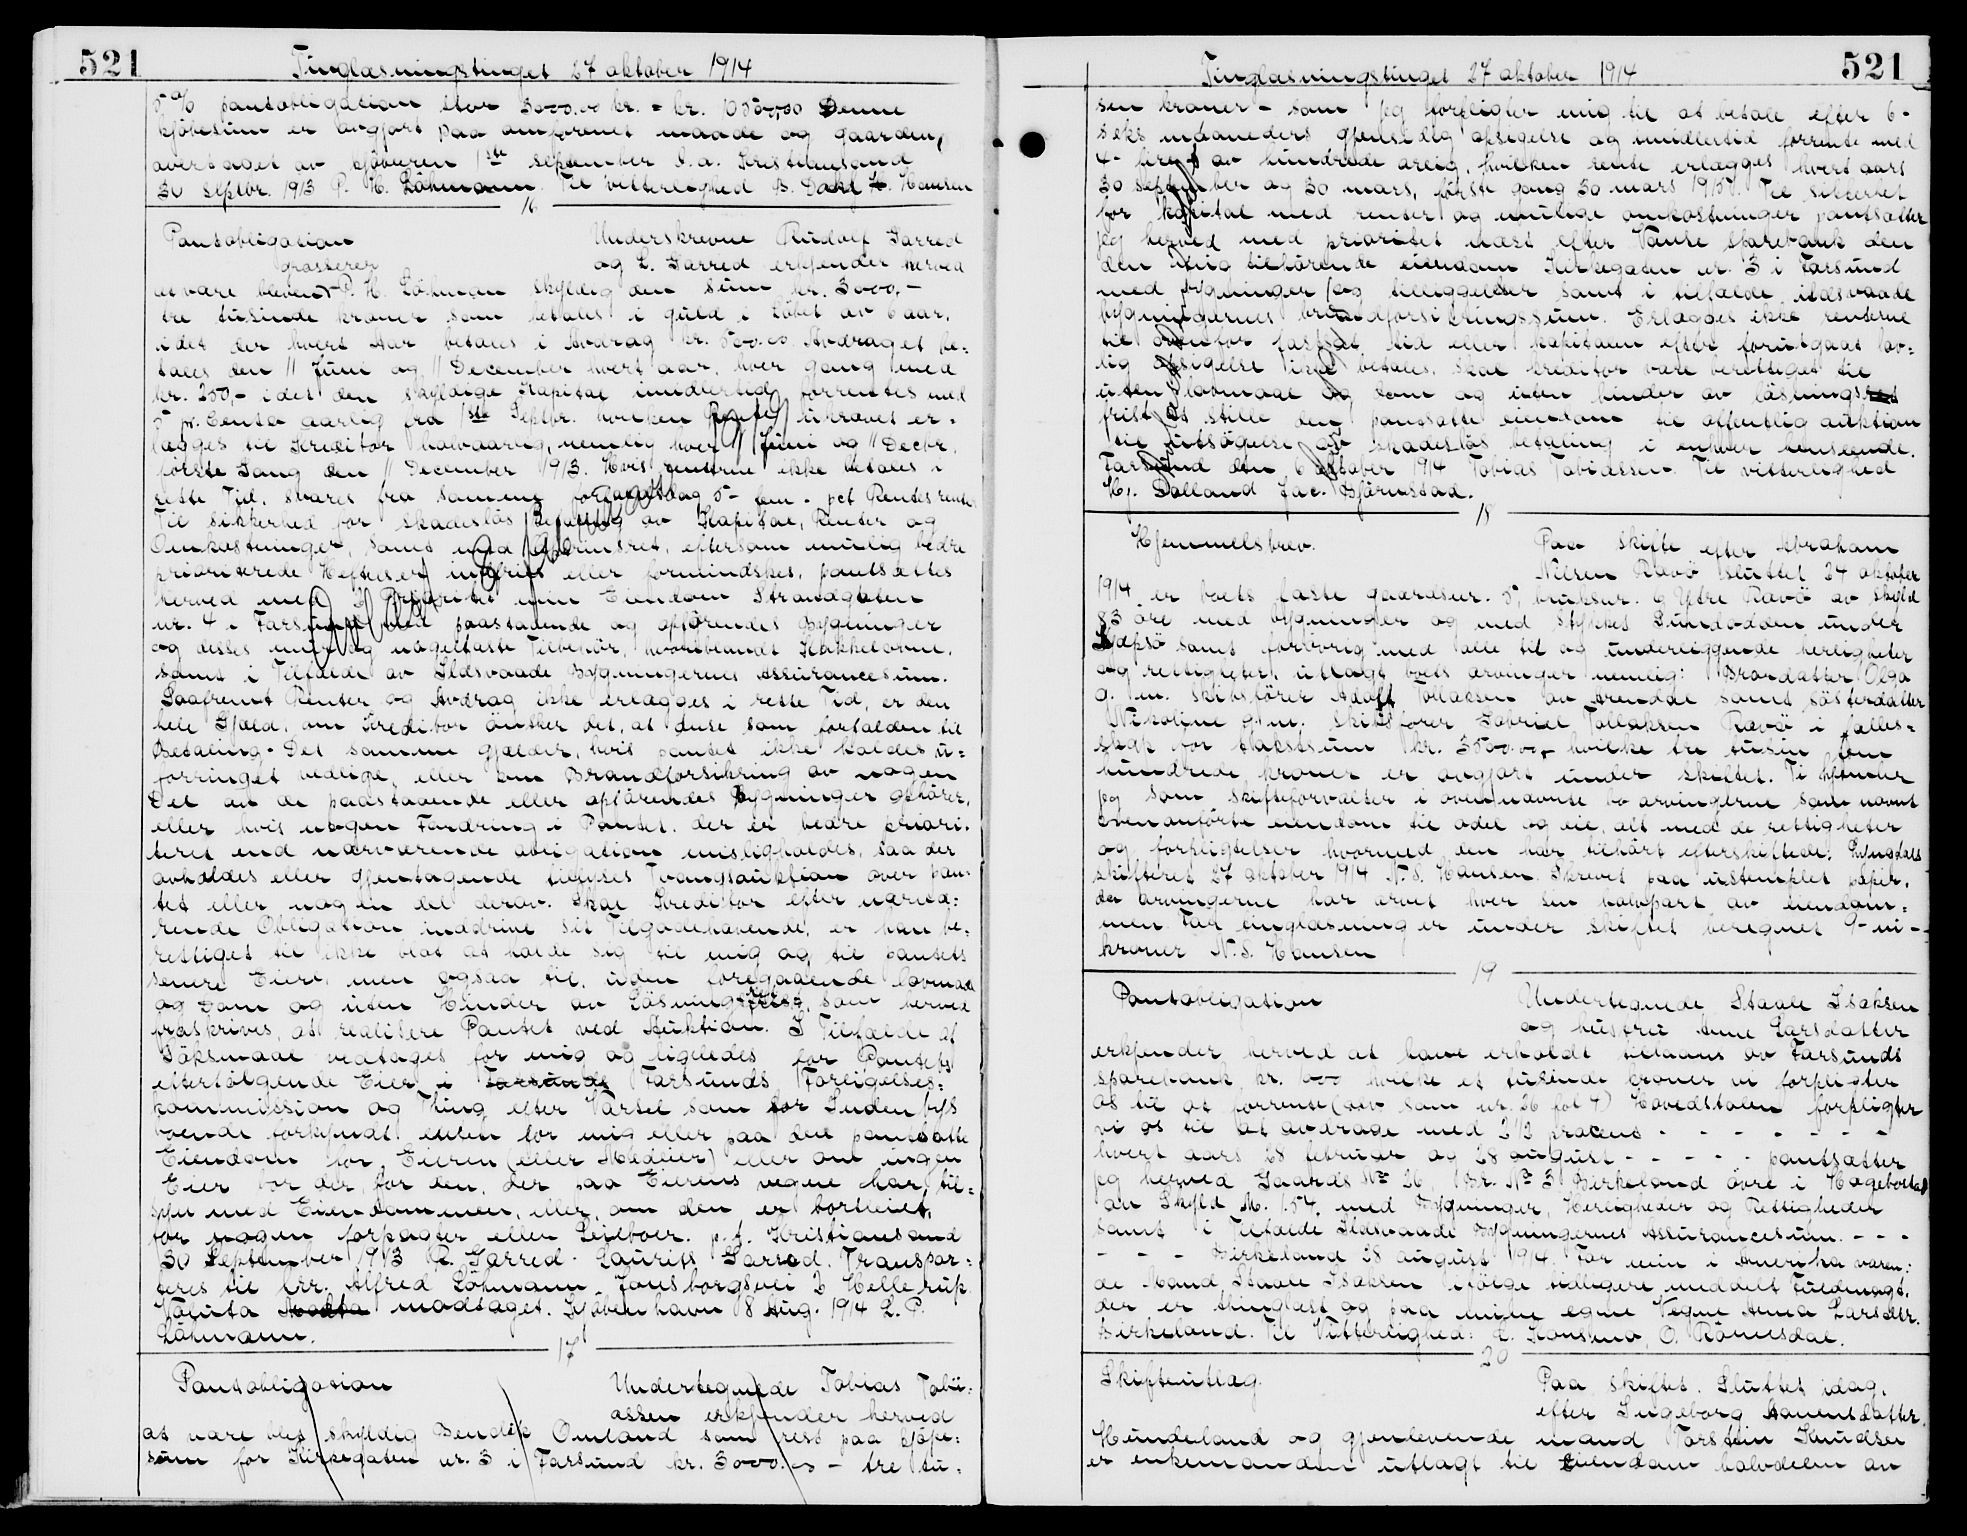 521
Tinglæsningstinget 27 oktober 1914
5 % pantobligation stor 3000.00 kr. = kr. 10500,00 Denne
kjöbesum er avgjort paa omforenet maade og gaarden
overtaget av kjöberen 1ste september d.a. Kristiansand
30 septbr. 1913 P. H. Löhmann. Til vitterlighed B. Dahl H. Hansen
16
Pantobligation Underskrevne Rudolf Jarred
grosserer og L. Jarred erkjender herved
at være bleven P. H. Löhman skyldig den sum kr. 3000,-
tre tusinde kroner som betales i guld i Löbet av 6 aar,
idet der hvert Aar betales i Avdrag kr. 500.00 Avdraget be-
tales den 11 Juni og 11 December hvert aar, hver gang med
kr. 250,- idet den skyldige Kapital imidlertid forrentes med
5 pr. Cento aarlig fra 1ste Septbr. hvilken Rente ukrævet er-
lægges til Kreditor halvaarlig, nemlig hver 11 Juni og 11 Decbr.
förste Gang den 11 December 1913. Hvis renterne ikke betales i
rette Tid, svares fra samme forfaldsdag 5 - fem - pct Rentes rente
Til sikkerhed for skadeslös Betaling av Kapital, Renter og
Omkostninger, samt med Oprinsret, eftersom mulig bedre
prioriterede Heftelser indfries eller formindskes, pantsættes
herved med 2 Prioritet min Eiendom Strandgaten
nr. 4 i Farsund med paastaaende og opförendes Bygninger
og disses mur og nagelfaste Tilbehör, hvoriblandt Kakkelovne,
samt i Tilfælde av Ildsvaade Bygningernes Assurancesum.
Saafremt Renter og Avdrag ikke erlægges i rette Tid, er den
hele Gjæld, om Kreditor önsker det, at anse som forfalden til
Betaling. Det samme gjælder, hvis pantet ikke holdes u-
forringet vedlige, eller om Brandforsikring av nogen
Del av de paastaaende eller opförendes Bygninger ophörer,
eller hvis nogen Fordring i Pantet, der er bedre priori-
teret end nærværende obligation misligholdes, saa der
avholdes eller gjentagende tillyses Tvangsauktion over pan-
tet eller nogen del derav. Skal Kreditor efter nærvæ-
rende Obligation inddrive sit Tilgodehavende, er han be-
rettiget til ikke blot at holde sig til mig og til pantets
senere Eier, men ogsaa til, uden foregaaende lovmaal
og dom og uten Hinder av Lösningsret, som herved
fraskrives, at realisere Pantet ved Auktion. I Tilfælde af
Söksmaal vedtages for mig og ligeledes for Pantets
efterfölgende Eier i Farsunds Forligelses-
kommission og Thing efter Varsel som for Inden bys
boende forkyndt enten for mig eller paa den pantsatte
Eiendom for Eieren (eller Medeier) eller om ingen
Eier bor der, for den, der paa Eierens vegne har til-
syn med Eiendommen, eller, om den er bortleiet,
for nogen forpagter eller Leilboer. p.t. Kristiansand
30 September 1913 R. Jarred. Laurits Jarred. Transpor-
teres til hrr. Alfred Löhmann, Jonsborgsvei 2 Hellerup.
Valuta modtaget. Kjöbenhavn 18 Aug. 1914 L. P.
Löhmann.
17
Pantobligation Undertegnede Tobias Tobi-
assen erkjender herved
at være blet skyldig Bendik Omland som rest paa kjöpe-
sum for Kirkegaten nr. 3 i Farsund kr. 3000.00 - tre tu-
Tinglæsningstinget 27 oktober 1914
521
sen kroner - som jeg forpligter mig til at betale efter 6 -
seks maaneders gjensidig opsigelse og imidlertid forrente med
4 - fire av hundrede aarlig, hvilken rente erlægges hvert aars
30 September og 30 mars, förste gang 30 mars 1915. Til sikkerhet
for kapital med renter og mulige omkostninger pantsætter
jeg herved med prioritet næst efter Vanse sparebank den
den mig tilhörende eiendom Kirkegaten nr. 3 i Farsund
med bygninger og tilliggelser samt i tilfælde ildsvaade
bygningernes brandforsikringssum. Erlægges ikke renterne
til ovenfor fastsat tid eller kapitalen efter forutgaat lov-
lig opsigelse ikke betales, skal kreditor være berettiget til
uten lovmaal og dom og uten hinder av lösnings
frist at stille den pantsatte eiendom til offentlig auktion
til utsögelse av skadeslös betaling i enhver henseende.
Farsund den 6 oktober 1914 Tobias Tobiassen. Til vitterlighed
Hj. Dalland Jac. Björnstad.
18
Hjemmelsbrev. Paa skifte efter Abraham
Nilsen Ravö sluttet 24 oktober
1914 er boets faste gaardsnr. 5, bruksnr. 9 Ytre Ravö av skyld
83 öre med bygninger og med stykket Lundodden under
samt forövrig med alle til og underliggende herligheter
og rettigheter, utlagt boets arvinger nemlig: Brordatter Olga
g. m. skibsförer Adolf Tollaksen av Arendal samt sösterdatter
Nikoline g. m. skibsförer Gabriel Tollaksen Ravö i fælles-
skap for takstsum kr. 3500.00, hvilke tre tusin fem
hundrede kroner er avgjort under skiftet. Ti hjemler
jeg som skifteforvalter i ovennævnte bo arvingerne som nævnt
ovenanförte eiendom til odel og eie, alt med de rettigheter
og forpligtelser hvormed den har tilhört efterskiftede: Lyngdals
skifteret 27 oktober 1914 N. S. Hansen. Skrevet paa ustemplet papir,
da arvingerne har arvet hver sin halvpart av eiendom-
men. For tinglæsning er under skiftet beregnet 9 - ni -
kroner N. S. Hansen
19
Pantobligation Undertegnede Staale Isaksen
og hustru Anne Larsdatter
erkjender herved at have erholdt tillaans av Farsunds
sparebank kr. 1000 hvilke et tusinde kroner vi forpligter
os til at forrente (som nr. 26 fol 4) Hovedstolen forpligter
vi os til at avdrage med 2 1/2 procent - - - - - - -
hvert aars 28 februar og 28 august - - - - - pantsætter
jeg herved Gaards No 26, Br. No 3 Birkeland övre i Hægebostad
av Skyld M. 1.54, med Bygninger, Herligheder og Rettigheder
samt i Tilfælde Ildsvaade Bygningernes Assurancesum. - - -
- - - Birkeland 28 august 1914. For min i Amerika væren-
de Mand Staale Isaksen ifölge tidligere meddelt Fuldmagt,
der er thinglæst og paa mine egne Vegne Anna Larsdtr.
Birkeland. Til Vitterlighed: L. Konsmo, O. Römesdal.
20
Skifteutlæg. Paa skiftet. Sluttet idag,
efter Ingeborg Aanensdatter
Hunderland og gjenlevende mand Torstein Knudsen
er enkemanden utlagt til eiendom halvdelen av